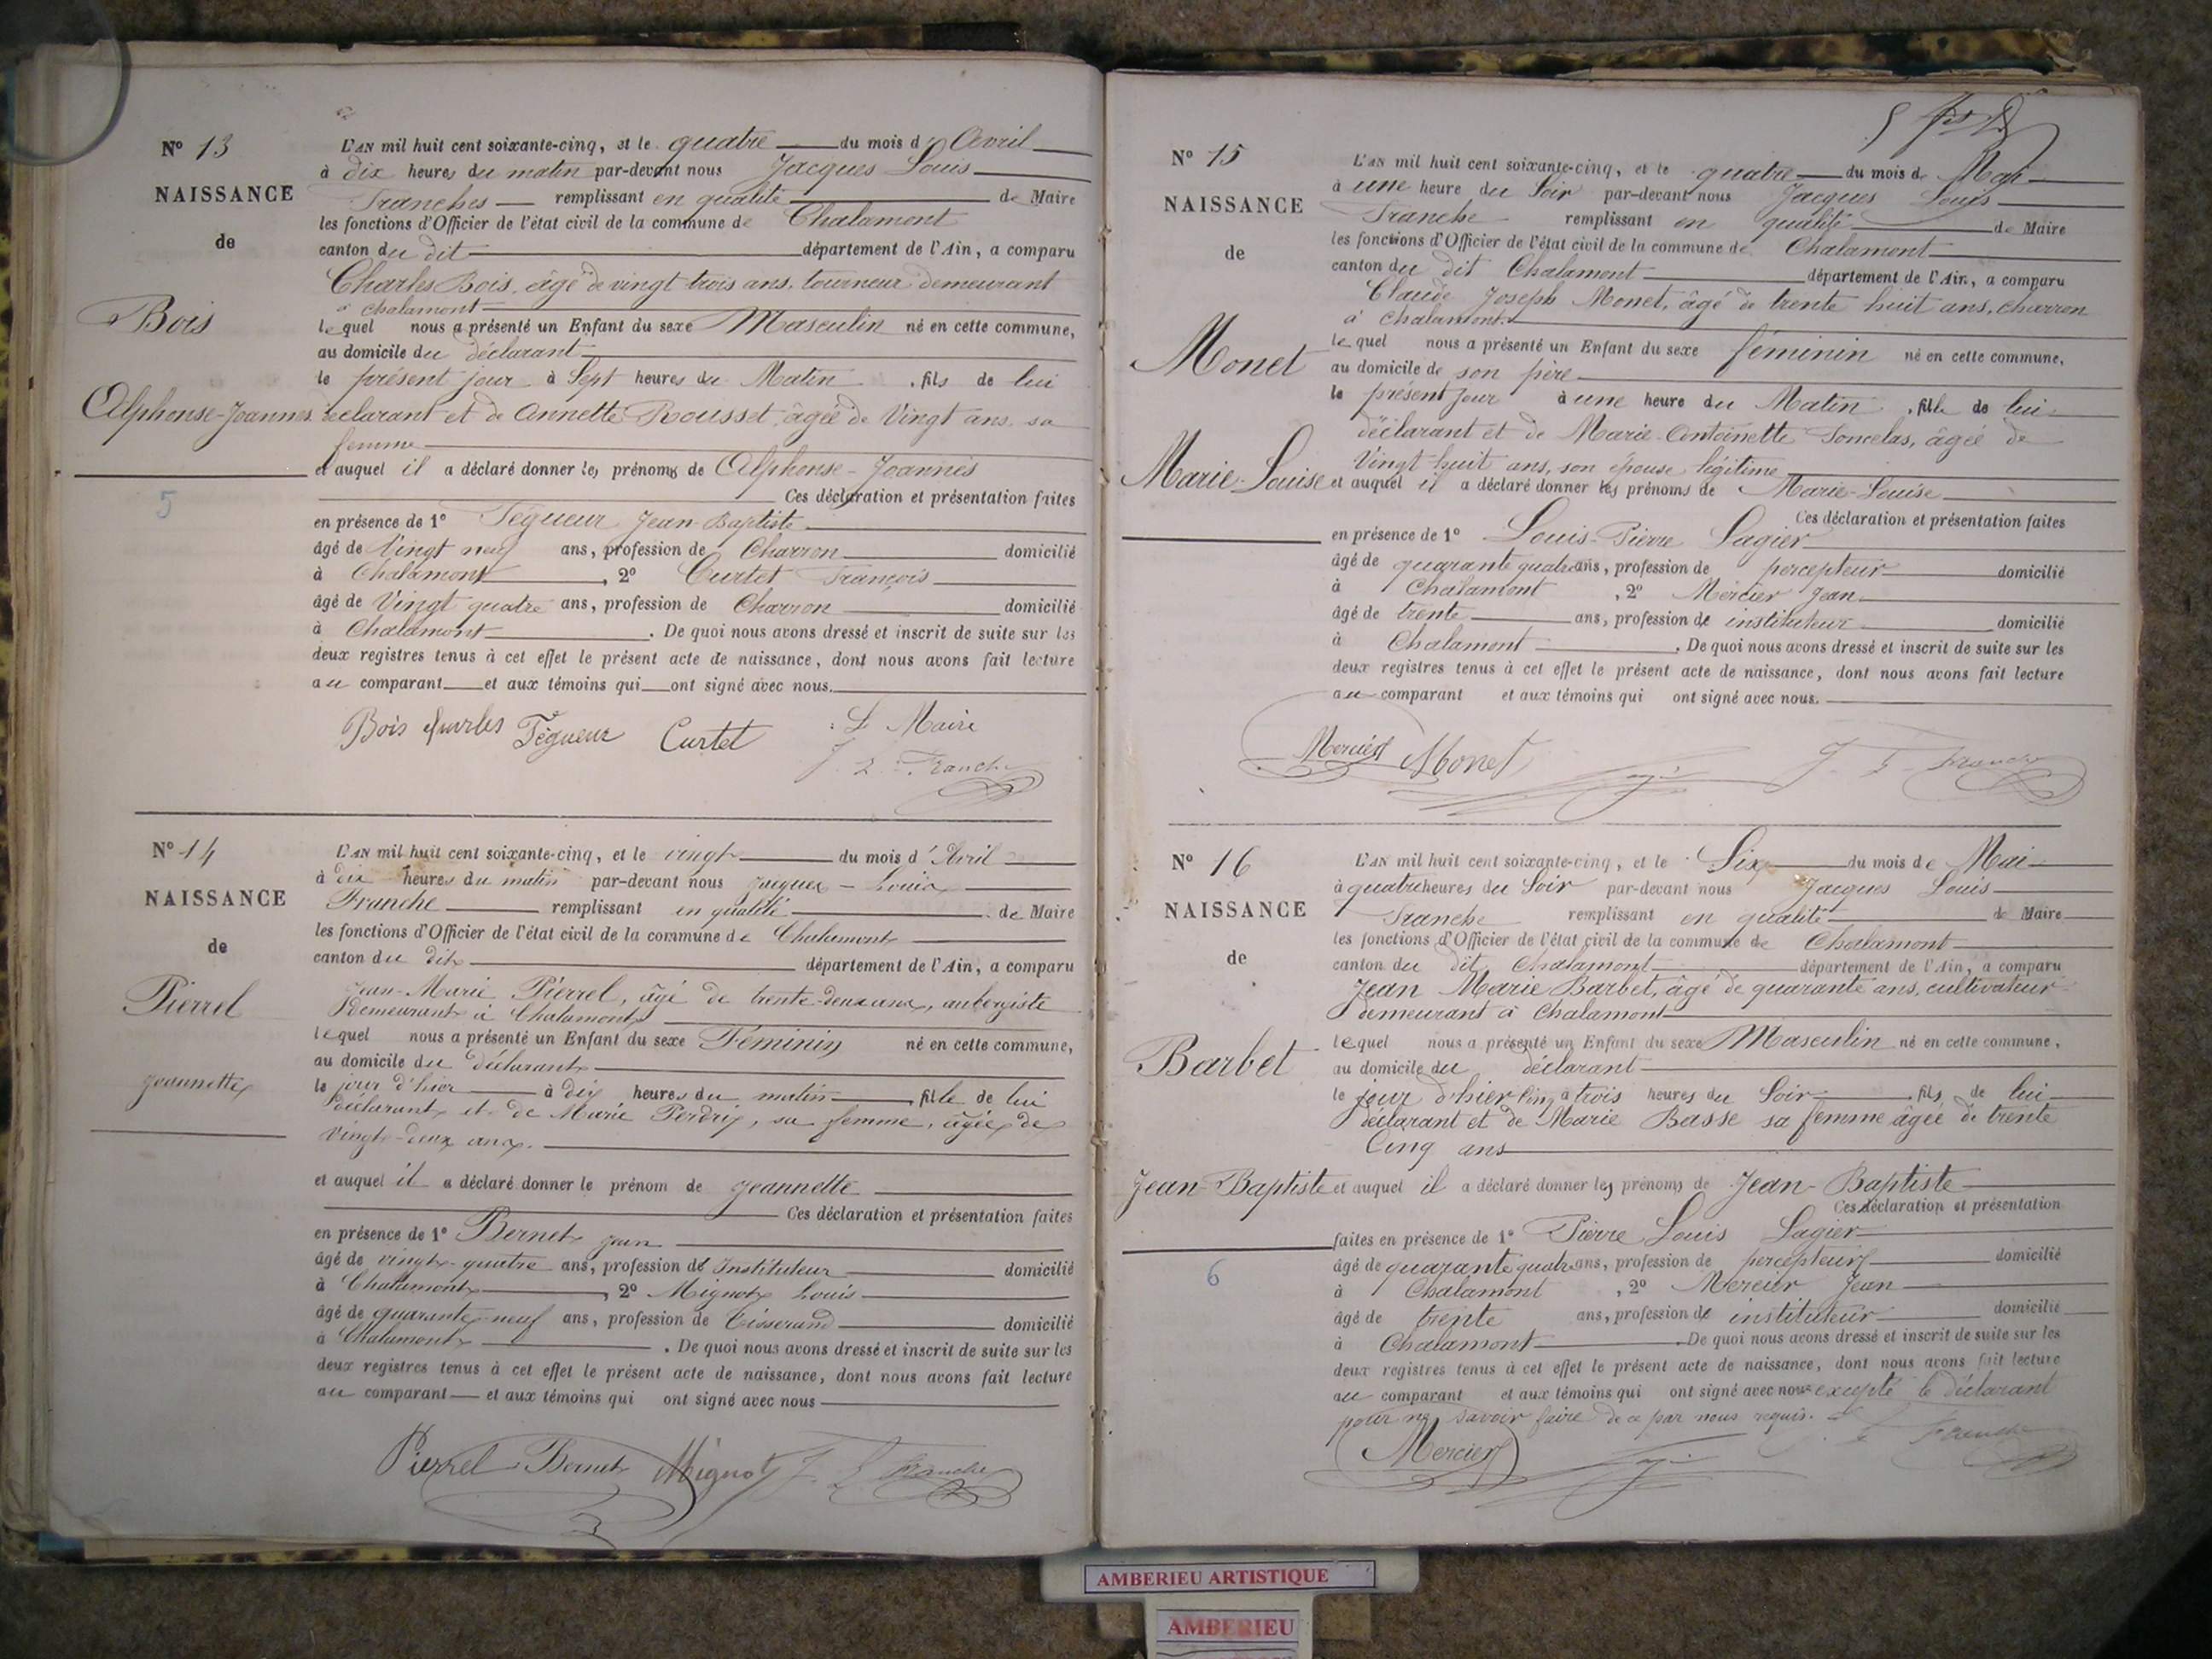 N° 13
NAISSANCE
de
Bois
Alphonse-Joannes
5
L'AN mil huit cent soixante-cinq, et le quatre du mois d'Avril
à dix heures du matin par-devant nous Jacques Louis
Franches remplissant en qualité de Maire
les fonctions d'Officier de l'état civil de la commune de Chalamont
canton du dit département de l'Ain, a comparu
Charles Bois, âgé de vingt trois ans, tourneur demeurant
à Chalamont
lequel nous a présenté un Enfant du sexe Masculin né en cette commune,
au domicile du déclarant
le présent jour à Sept heures du Matin, fils de lui
declarant et de Annette Rousset, âgée de Vingt ans, sa
femme
et auquel il a déclaré donner les prénoms de Alphonse-Joannès
Ces déclaration et présentation faites
en présence de 1° Tégueur Jean-Baptiste
âgé de Vingt neuf ans, profession de Charron domicilié
à Chalamont, 2° Curtet François
âgé de Vingt quatre ans, profession de Charron domicilié
à Chalamont. De quoi nous avons dressé et inscrit de suite sur les
deux registres tenus à cet effet le présent acte de naissance, dont nous avons fait lecture
au comparant et aux témoins qui ont signé avec nous.
Bois Charles Tégueur Curtet Le Maire
J. L. Franche
N° 14
NAISSANCE
de
Pierrel
Jeannette
L'AN mil huit cent soixante-cinq, et le vingt du mois d'Avril
à dix heures du matin par-devant nous Jacques-Louis
Franche remplissant en qualité de Maire
les fonctions d'Officier de l'état civil de la commune de Chalamont
canton du dit département de l'Ain, a comparu
Jean-Marie Pierrel, âgé de trente-deux ans, aubergiste
demeurant à Chalamont
lequel nous a présenté un Enfant du sexe Féminin né en cette commune,
au domicile du déclarant
le jour d'hier à dix heures du matin, fille de lui
déclarant et de Marie Perdrix, sa femme, âgée de
vingt-deux ans.
et auquel il a déclaré donner le prénom de Jeannette
Ces déclaration et présentation faites
en présence de 1° Bernet Jean
âgé de vingt-quatre ans, profession de Instituteur domicilié
à Chalamont, 2° Mignot Louis
âgé de quarante-neuf ans, profession de tisserand domicilié
à Chalamont. De quoi nous avons dressé et inscrit de suite sur les
deux registres tenus à cet effet le présent acte de naissance, dont nous avons fait lecture
au comparant et aux témoins qui ont signé avec nous
Pierrel Bernet Mignot J. L. Franche
N° 15
NAISSANCE
de
Monet
Marie-Louise
L'AN mil huit cent soixante-cinq, et le quatre du mois de Mai
à une heure du Soir par-devant nous Jacques Louis
Franche remplissant en qualité de Maire
les fonctions d'Officier de l'état civil de la commune de Chalamont
canton du dit Chalamont département de l'Ain, a comparu
Claude Joseph Monet, âgé de trente huit ans, charron
à Chalamont.
lequel nous a présenté un Enfant du sexe féminin né en cette commune,
au domicile de son père
le présent jour à une heure du Matin, fille de lui
déclarant et de Marie-Antoinette Soncelas, âgée de
Vingt-huit ans, son épouse légitime
et auquel il a déclaré donner les prénoms de Marie-Louise
Ces déclaration et présentation faites
en présence de 1° Louis-Pierre Lagier
âgé de quarante quatre ans, profession de percepteur domicilié
à Chalamont, 2° Mercier Jean
âgé de trente ans, profession de instituteur domicilié
à Chalamont. De quoi nous avons dressé et inscrit de suite sur les
deux registres tenus à cet effet le présent acte de naissance, dont nous avons fait lecture
au comparant et aux témoins qui ont signé avec nous.
Mercier Monet J. L. Franche
N° 16
NAISSANCE
de
Barbet
Jean Baptiste
6
L'AN mil huit cent soixante-cinq, et le Six du mois de Mai
à quatre heures du Soir par-devant nous Jacques Louis
Franche remplissant en qualité de Maire
les fonctions d'Officier de l'état civil de la commune de Chalamont
canton du dit Chalamont département de l'Ain, a comparu
Jean Marie Barbet, âgé de quarante ans, cultivateur
demeurant à Chalamont
lequel nous a présenté un Enfant du sexe Masculin né en cette commune,
au domicile du déclarant
le jour d'hier cinq à trois heures du Soir, fils de lui
déclarant et de Marie Basse sa femme âgée de trente
Cinq ans
et auquel il a déclaré donner les prénoms de Jean-Baptiste
Ces déclaration et présentation
faites en présence de 1° Pierre Louis Lagier
âgé de quarante quatre ans, profession de percepteur domicilié
à Chalamont, 2° Mercier Jean
âgé de trente ans, profession de instituteur domicilié
à Chalamont. De quoi nous avons dressé et inscrit de suite sur les
deux registres tenus à cet effet le présent acte de naissance, dont nous avons fait lecture
au comparant et aux témoins qui ont signé avec nous excepté le déclarant
pour ne savoir faire de ce par nous requis.
Mercier J. L. Franche
AMBERIEU ARTISTIQUE
AMBERIEU